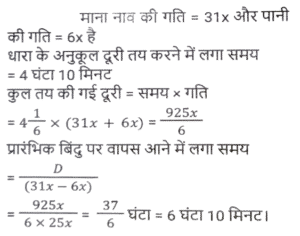 माना नाव की गति = 31x और पानी
की गति = 6x है
धारा के अनुकूल दूरी तय करने में लगा समय
= 4 घंटा 10 मिनट
कुल तय की गई दूरी = समय × गति
= 4 1/6 × (31x + 6x) = 925x/6
प्रारंभिक बिंदु पर वापस आने में लगा समय
= D/(31x − 6x)
= 925x/(6 × 25x) = 37/6 घंटा = 6 घंटा 10 मिनट।